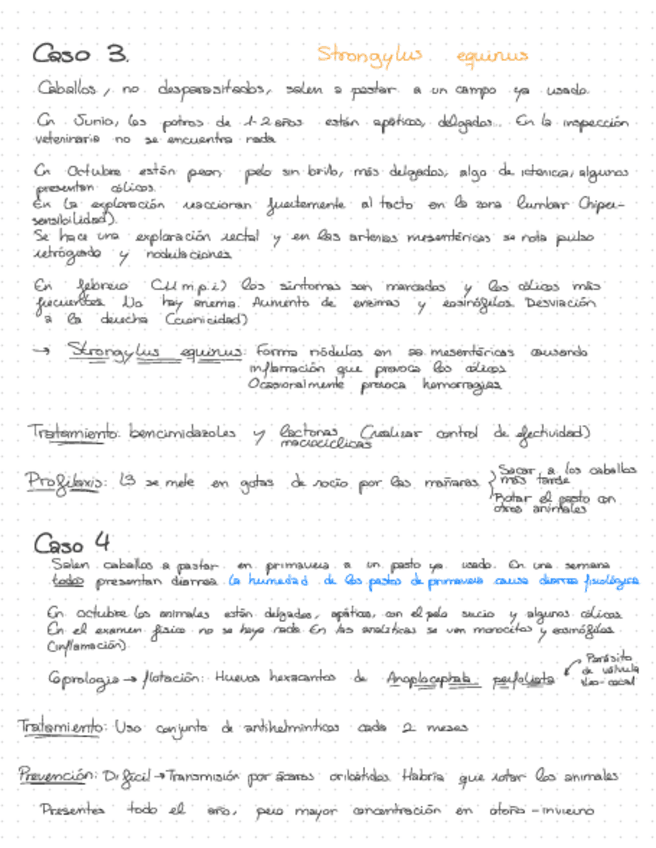 Caso 3. Strongylus equinus
Caballos, no desparasitados, salen a pastar a un campo ya usado.
En Junio, los potros de 1-2 años están apáticos, delgados... En la inspección
veterinaria no se encuentra nada
En Octubre están peor: pelo sin brillo, más delgados, algo de ictericia, algunos
presentan cólicos.
En la exploración reaccionan fuertemente al tacto en la zona lumbar (hiper-
sensibilidad).
Se hace una exploración rectal y en las arterias mesentéricas se nota pulso
retrógrado y nodulaciones
En febrero los síntomas son marcados y los cólicos más
frecuentes. No hay anemia. Aumento de enzimas y eosinófilos. Desviación
a la derecha (cronicidad)
→ Strongylus equinus: Forma nódulos en aa mesentéricas causando
inflamación que provoca los cólicos
Ocasionalmente provoca hemorragias
Tratamiento: bencimidazoles y lactonas (realizar control de efectividad)
macrocíclicas
Profilaxis: L3 se mete en gotas de rocío por las mañanas
Sacar a los caballos
más tarde
Rotar el pasto con
otros animales
Caso 4
Salen caballos a pastar en primavera a un pasto ya usado. En una semana
todos presentan diarrea. La humedad de los pastos de primavera causa diarrea fisiológica
En octubre los animales están delgados, apáticos, con el pelo sucio y algunos cólicos.
En el examen físico no se haya nada. En las analíticas se ven monocitos y eosinófilos
(inflamación)
Coprología → flotación: Huevos hexacantos de Anoplocephala perfoliata
Parásito
de válvula
íleo-cecal
Tratamiento: Uso conjunto de antihelmínticos cada 2 meses
Prevención: Difícil → Transmisión por ácaros oribátidos. Habría que rotar los animales
Presentes todo el año, pero mayor concentración en otoño-invierno